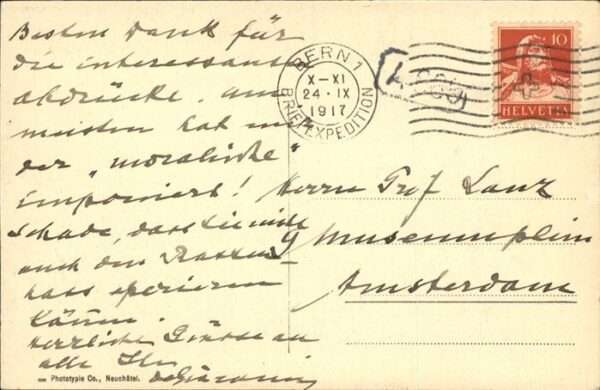 Besten Dank für
die interessanten
abdrücke. am
meisten hat mir
der "moralische"
imponiert!
Schade, dass Sie nicht
auch den Rassen-
hass operieren
können.
Herzliche Grüsse an
alle Ihr
Phototypie Co., Neuchâtel.
BERN 1
X-XI
24·IX
1917
BRIEFEXPEDITION
10
HELVETIA
Herrn Prof Lanz
9 Museumplein
Amsterdam